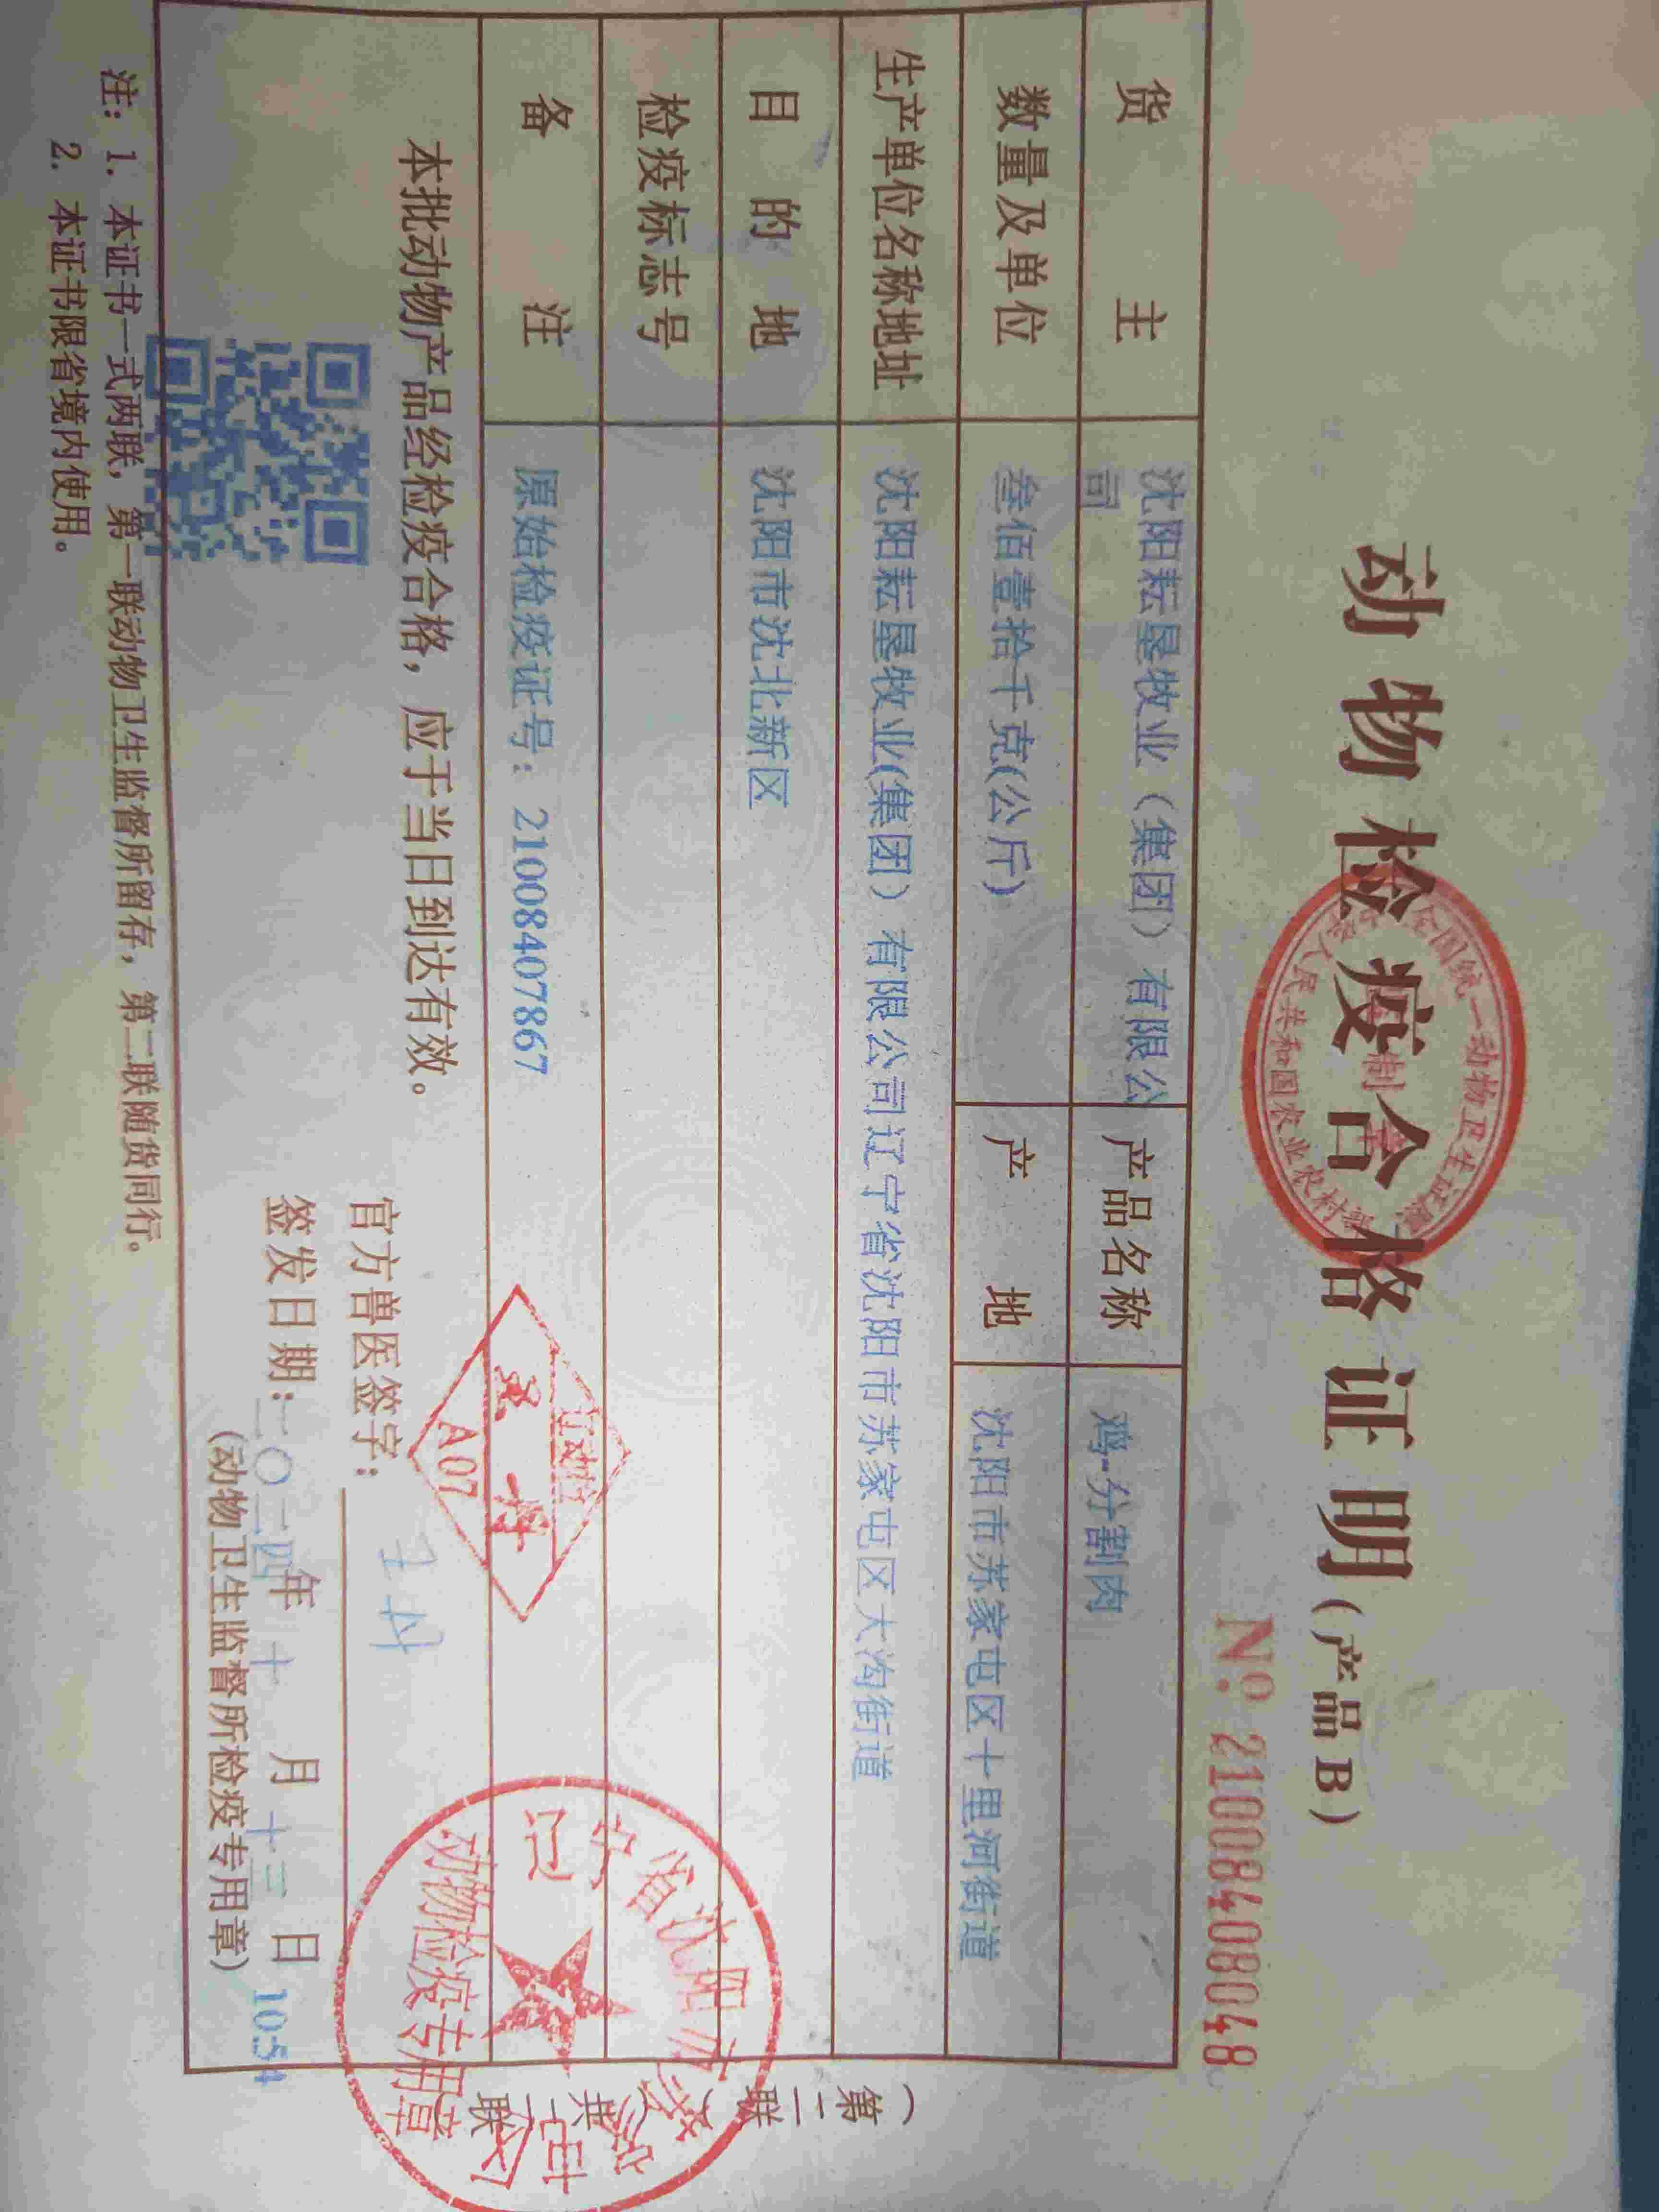 动物检疫合格证明(产品B)
№ 21008408048
货主 沈阳耘垦牧业（集团）有限公司 产品名称 鸡-分割肉
数量及单位 叁佰壹拾千克(公斤) 产地 沈阳市苏家屯区十里河街道
生产单位名称地址 沈阳耘垦牧业(集团）有限公司辽宁省沈阳市苏家屯区大沟街道
目的地 沈阳市沈北新区
检疫标志号
备注 原始检疫证号：21008407867
本批动物产品经检疫合格，应于当日到达有效。
官方兽医签字：
签发日期：二〇二四年十月十三日 10:54
(动物卫生监督所检疫专用章)
注：1. 本证书一式两联，第一联动物卫生监督所留存，第二联随货同行。
2. 本证书限省境内使用。
（第二联 共二联）
A07
动物检疫专用章